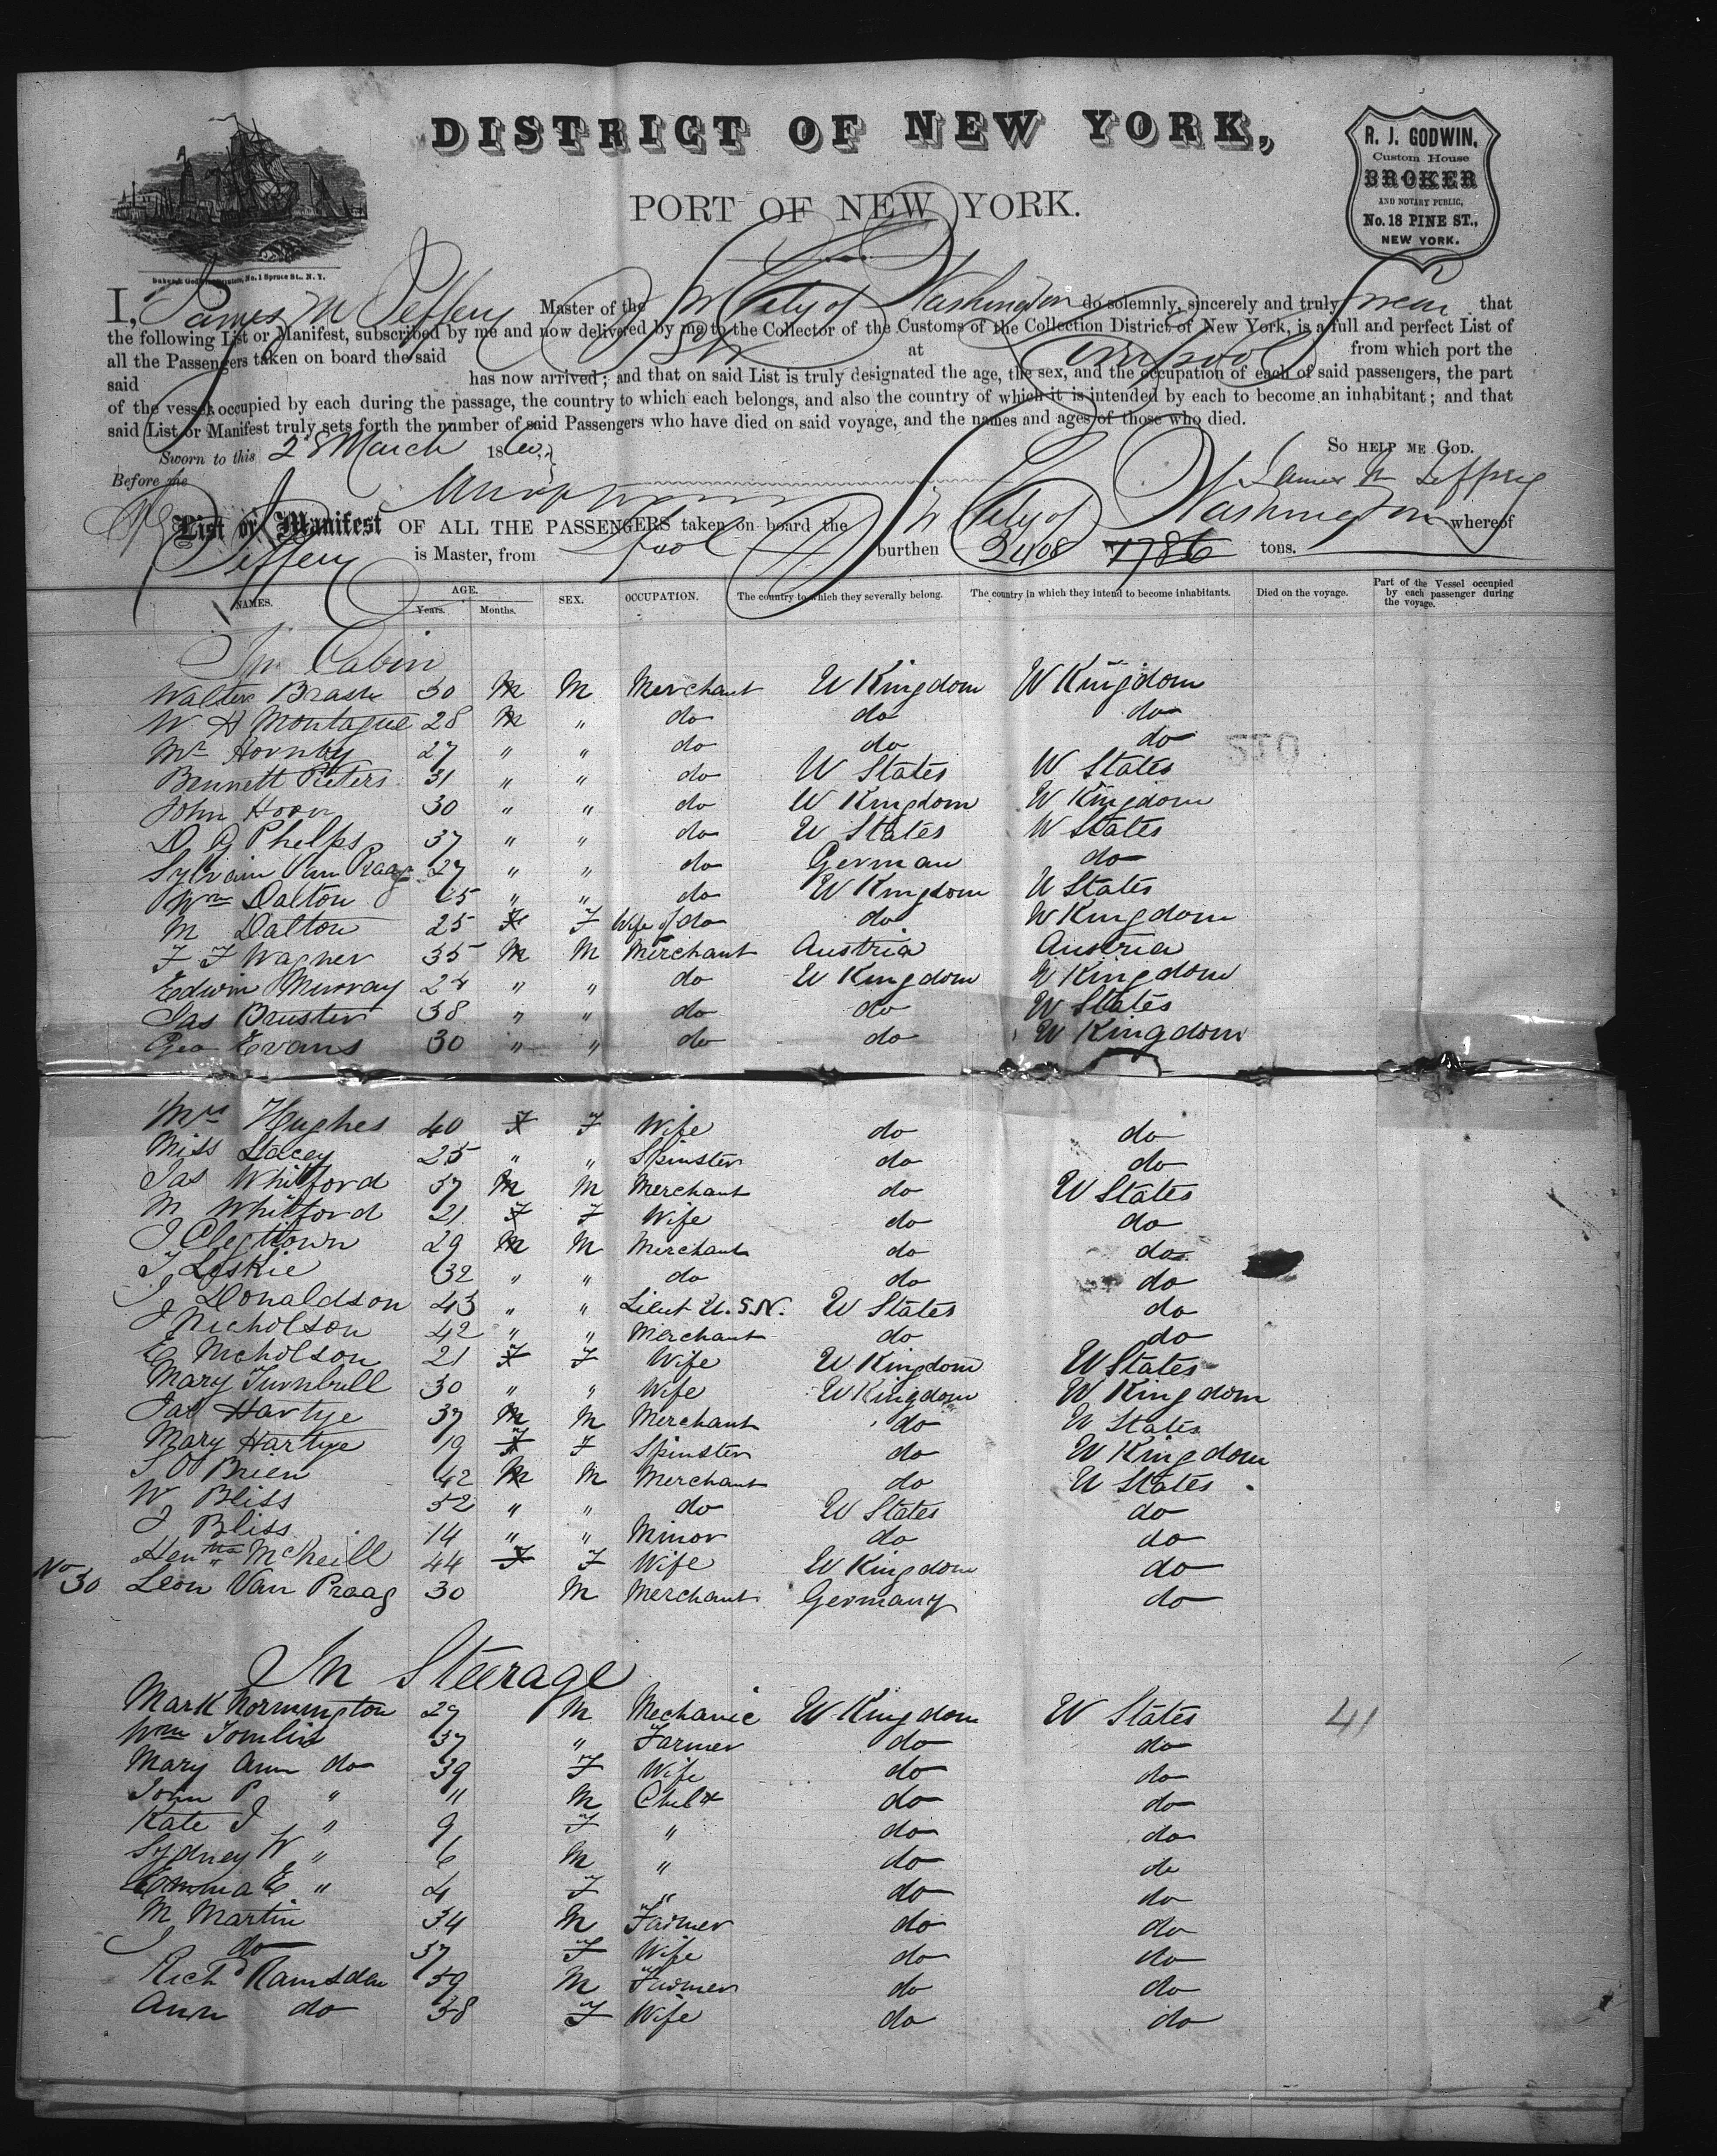 DISTRICT OF NEW YORK,
PORT OF NEW YORK.
R. J. GODWIN,
Custom House
BROKER
AND NOTARY PUBLIC,
No. 18 PINE ST.,
NEW YORK.
No. 1 Spruce St., N. Y.
I, James M Jeffery Master of the Str City of Washington do solemnly, sincerely and truly swear that
the following List or Manifest, subscribed by me and now delivered by me to the Collector of the Customs of the Collection District of New York, is a full and perfect List of
all the Passengers taken on board the said Str at Liverpool from which port the
said has now arrived; and that on said List is truly designated the age, the sex, and the occupation of each of said passengers, the part
of the vessel occupied by each during the passage, the country to which each belongs, and also the country of which it is intended by each to become an inhabitant; and that
said List or Manifest truly sets forth the number of said Passengers who have died on said voyage, and the names and ages of those who died.
Sworn to this 28 March 186 SO HELP ME GOD.
Before me James M Jeffrey
List or Manifest OF ALL THE PASSENGERS taken on board the Str City of Washington whereof
Jeffery is Master, from L'pool burthen 2408 1786 tons.
NAMES. AGE. Years. Months. SEX. OCCUPATION. The country to which they severally belong. The country in which they intend to become inhabitants. Died on the voyage. Part of the Vessel occupied by each passenger during the voyage.
In Cabin
Walter Brash 30 M M Merchant U Kingdom U Kingdom
W H Montague 28 M " do do do
Mr Hornby 27 " " do do do 210
Bennett Pieters 31 " " do U States U States
John Horn 30 " " do U Kingdom U Kingdom
D G Phelps 37 " " do U States U States
Sylvain Van Praag 27 " " do German do
Wm Dalton 25 " " do U Kingdom U States
M Dalton 25 F F Wife of do do U Kingdom
F F Wagner 35 M M Merchant Austria Austria
Edwin Murray 24 " " do U Kingdom U Kingdom
Jas Bruster 38 " " do do U States
Geo Evans 30 " " do do U Kingdom
Mrs Hughes 40 F F Wife do do
Miss Stacey 25 " " Spinster do do
Jas Whitford 37 M M Merchant do U States
M Whitford 21 F F Wife do do
J Cleghorn 29 M M Merchant do do
J Leskie 32 " " do do do
J Donaldson 43 " " Lieut U.S.N. U States do
J Nicholson 42 " " Merchant do do
E Nicholson 21 F F Wife U Kingdom U States
Mary Turnbull 30 " " Wife U Kingdom U Kingdom
Jas Hartye 37 M M Merchant do U States
Mary Hartye 19 F F Spinster do U Kingdom
S O Brien 42 M M Merchant do U States
W Bliss 52 " " do U States do
J Bliss 14 " " Minor do do
Hentta McNeill 44 F F Wife U Kingdom do
No 30 Leon Van Praag 30 M Merchant Germany do
In Steerage
Mark Normington 27 M Mechanic U Kingdom U States 41
Wm Tomlin 37 " Farmer do do
Mary Ann do 39 F Wife do do
John P " 11 M Child do do
Kate J " 9 F " do do
Sydney W " 6 M " do do
Emma E " 4 F " do do
M Martin 34 M Farmer do do
J do 37 F Wife do do
Richd Ramsden 59 M Farmer do do
Ann do 58 F Wife do do